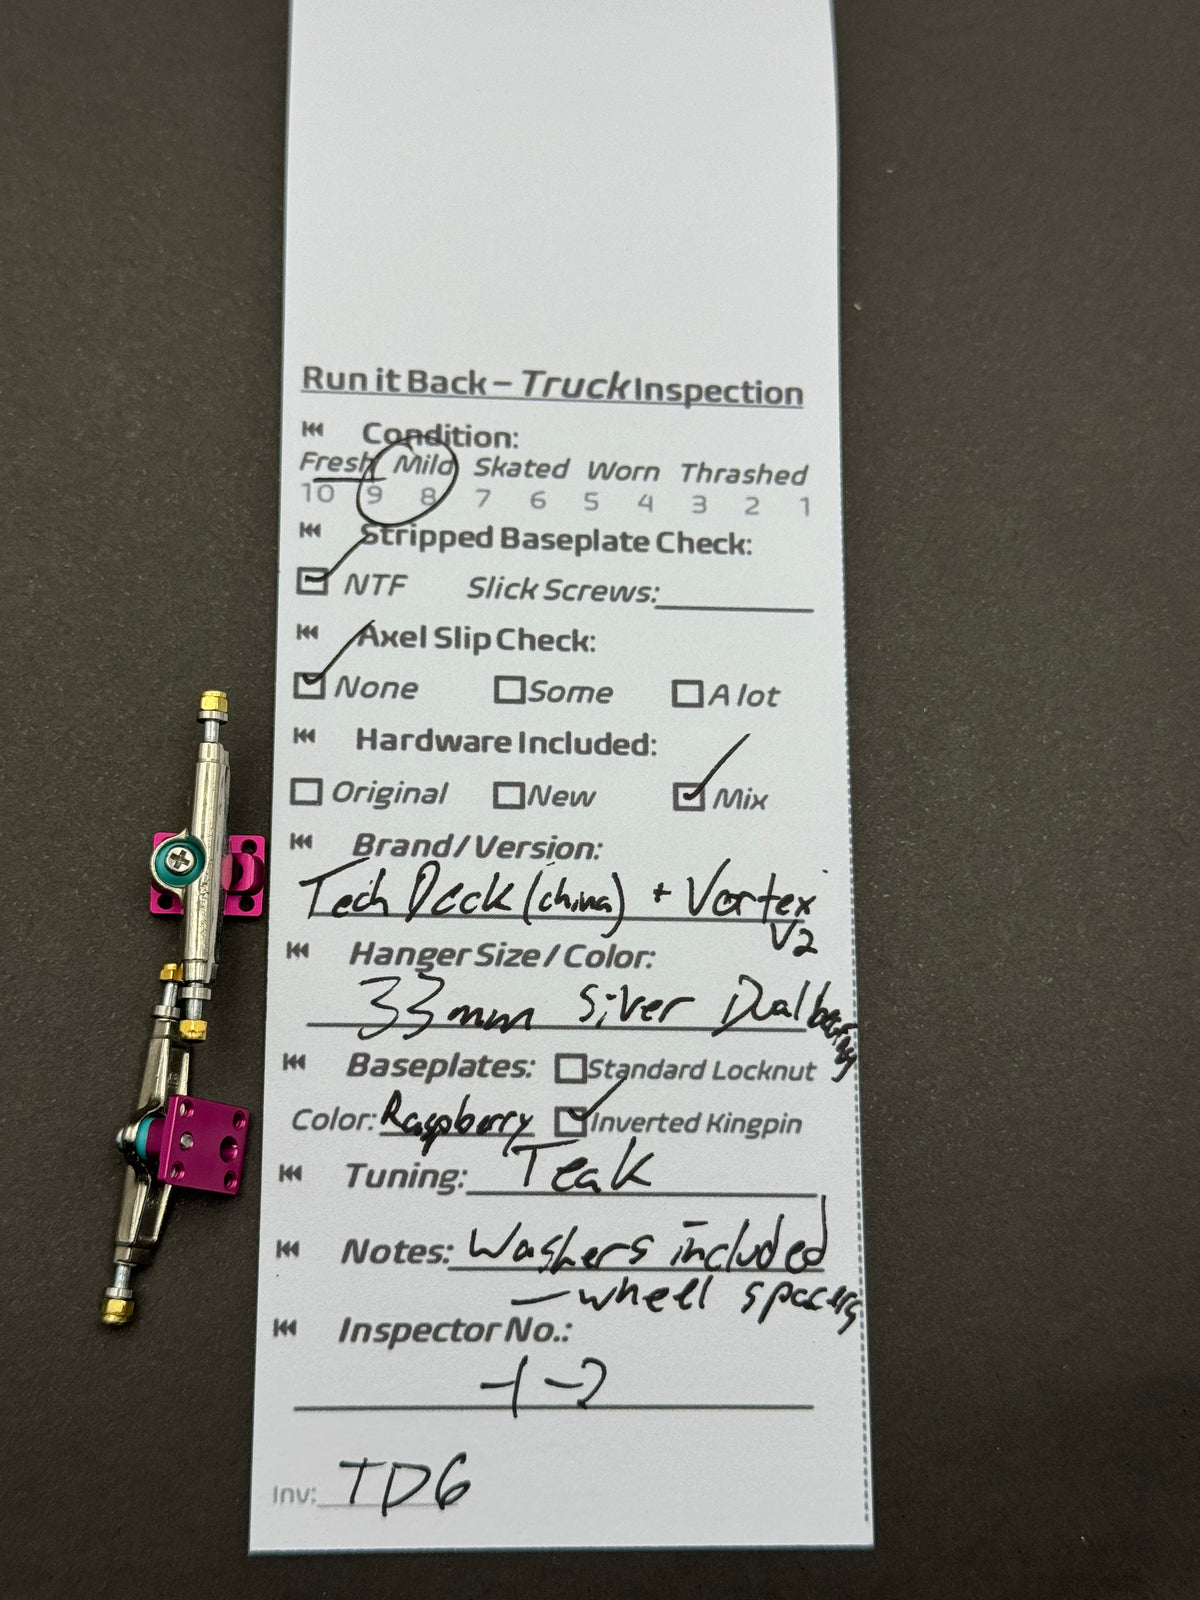 Run it Back – Truck Inspection
Condition:
Fresh Mild Skated Worn Thrashed
10 9 8 7 6 5 4 3 2 1
Stripped Baseplate Check:
NTF Slick Screws:
Axel Slip Check:
None Some A lot
Hardware Included:
Original New Mix
Brand / Version:
Tech Deck (china) + Vortex
V2
Hanger Size / Color:
33mm Silver Dual bearing
Baseplates: Standard Locknut
Color: Raspberry Inverted Kingpin
Tuning: Teak
Notes: Washers included
— wheel spacers
Inspector No.:
Inv: TD6